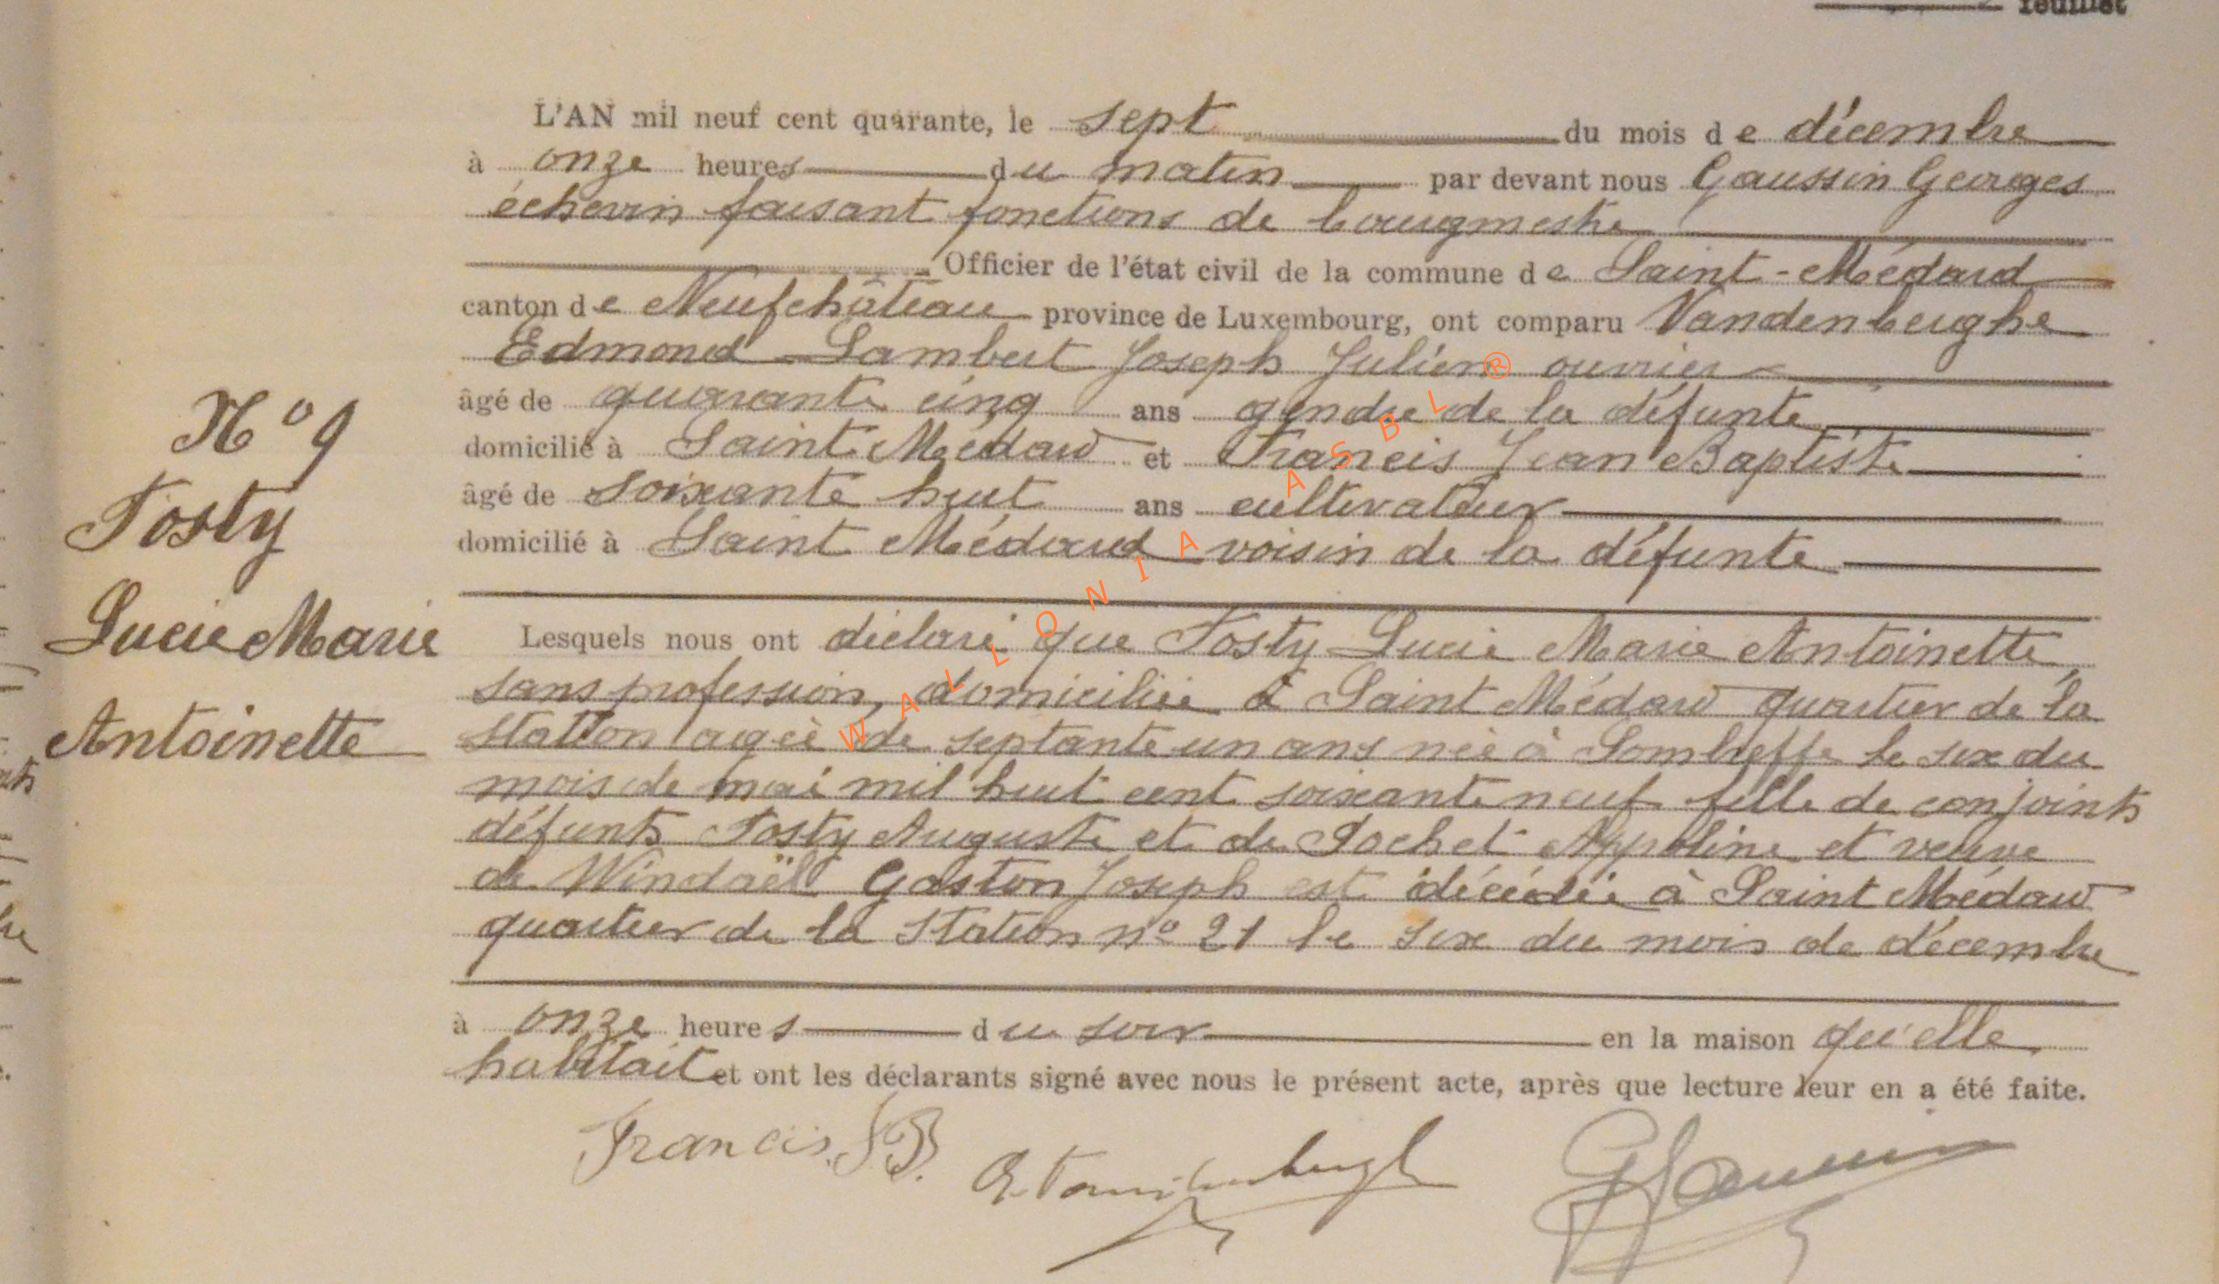 feuillet
L'AN mil neuf cent quarante, le sept du mois de décembre
à onze heures du matin par devant nous Gaussin Georges
échevin faisant fonctions de bourgmestre
Officier de l'état civil de la commune de Saint-Médard
canton de Neufchâteau province de Luxembourg, ont comparu Vandenberghe
Edmond Lambert Joseph Julien ouvrier
âgé de quarante cinq ans gendre de la défunte
domicilié à Saint Médard et Francis Jean Baptiste
âgé de soixante huit ans cultivateur
domicilié à Saint Médard voisin de la défunte
N° 9
Tosty
Lucie Marie
Antoinette
Lesquels nous ont déclaré que Tosty Lucie Marie Antoinette,
sans profession, domiciliée à Saint Médard quartier de la
station agée de septante un ans née à Sombreffe le six du
mois de mai mil huit cent soixante neuf fille de conjoints
défunts Tosty Auguste et de Pochet Appoline et veuve
de Windaël Gaston Joseph est décédée à Saint Médard
quartier de la station n° 21 le six du mois de décembre
à onze heures du soir en la maison qu'elle
habitait et ont les déclarants signé avec nous le présent acte, après que lecture leur en a été faite.
Francis J.B. E. Vandenbergh G Gaussin
WALLONIA ASBL®